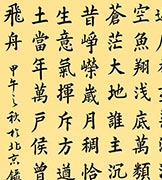 空魚翔浅底萬
蒼茫大地誰主沉
昔崢嶸歲月稠恰
生意氣揮斥方遒
土當年萬戶侯曾
飛舟
甲午之秋於北京